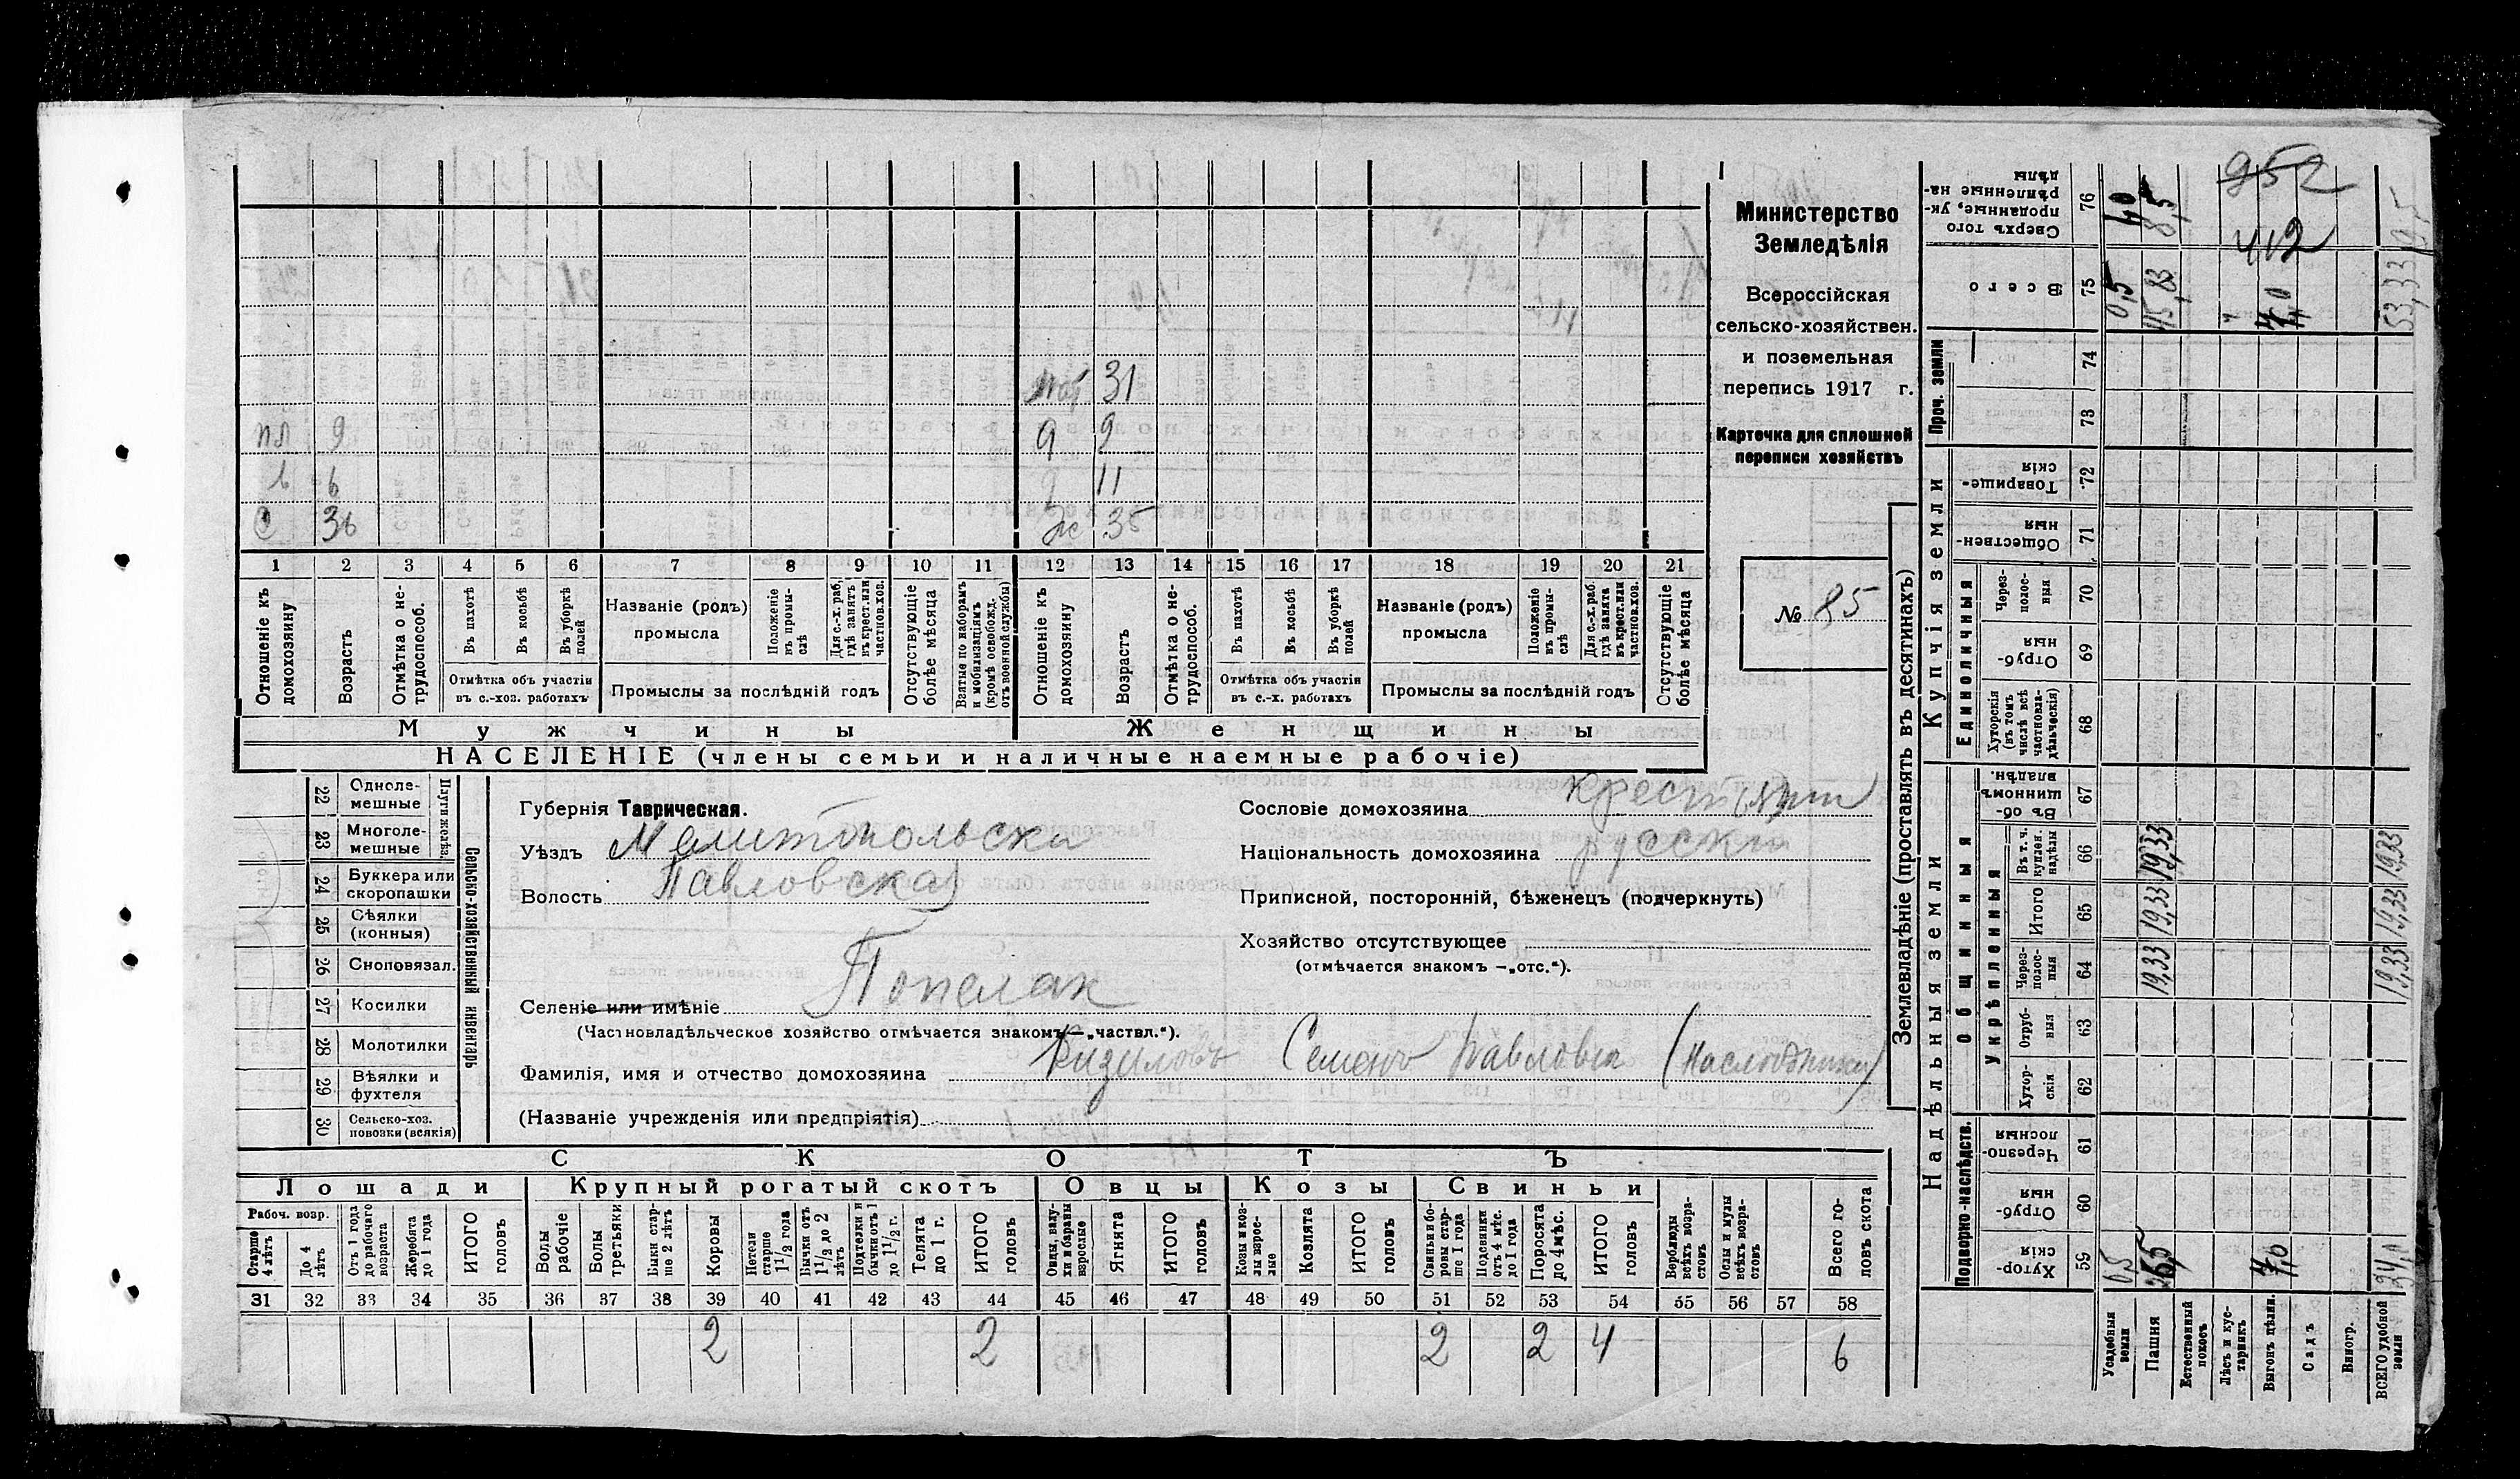 Министерство
Земледѣлія
Всероссійская
сельско-хозяйствен.
и поземельная
перепись 1917 г.
Карточка для сплошной
переписи хозяйствъ
№ 85
952
412
31
пл 9 9 9
6 11
36 Ж 35
1 2 3 4 5 6 7 8 9 10 11 12 13 14 15 16 17 18 19 20 21
Отношеніе къ домохозяину
Возрастъ
Отмѣтка о не-трудоспособ.
Въ пахотѣ
Въ косьбѣ
Въ уборкѣ полей
Отмѣтка объ участіи въ с.-хоз. работахъ
Названіе (родъ) промысла
Положеніе въ промы-слѣ
Для с.-х. раб. гдѣ занятъ въ крест. или частнов. хоз.
Промыслы за послѣдній годъ
Отсутствующіе болѣе мѣсяца
Взятые по наборамъ и мобилизаціямъ (кромѣ освобожд. отъ военной службы)
Отношеніе къ домохозяину
Возрастъ
Отмѣтка о не-трудоспособ.
Въ пахотѣ
Въ косьбѣ
Въ уборкѣ полей
Отмѣтка объ участіи въ с.-х. работахъ
Названіе (родъ) промысла
Положеніе въ промы-слѣ
Для с.-х. раб. гдѣ занята въ крест. или частнов. хоз.
Промыслы за послѣдній годъ
Отсутствующіе болѣе мѣсяца
Мужчины Женщины
НАСЕЛЕНІЕ (члены семьи и наличные наемные рабочіе)
Сельско-хозяйственный инвентарь
Плуги желѣз.
22 Одноле-мешные
23 Многоле-мешные
24 Буккера или скоропашки
25 Сѣялки (конныя)
26 Сноповязал.
27 Косилки
28 Молотилки
29 Вѣялки и фухтеля
30 Сельско-хоз. повозки (всякія)
Губернія Таврическая.
Уѣздъ Мелитопольски
Волость Павловская
Селеніе или имѣніе
(Частновладѣльческое хозяйство отмѣчается знакомъ — „частвл.“).
Фамилія, имя и отчество домохозяина Кизиловъ Семенъ Павловъ (Наследники)
(Названіе учрежденія или предпріятія)
Сословіе домохозяина крестьянин
Національность домохозяина русскій
Приписной, посторонній, бѣженецъ (подчеркнуть)
Хозяйство отсутствующее
(отмѣчается знакомъ — „отс.“).
СКОТЪ
Лошади Крупный рогатый скотъ Овцы Козы Свиньи
Рабоч. возр.
Старше 4 лѣтъ
До 4 лѣтъ
Отъ 1 года до рабочаго возраста
Жеребята до 1 года
ИТОГО головъ
Волы рабочіе
Волы третьяки
Быки стар-ше 2 лѣтъ
Коровы
Нетели старше 1 1/2 года
Бычки отъ 1 1/2 до 2 лѣтъ
Подтелки и бычки отъ 1 до 1 1/2 г.
Телята до 1 г.
ИТОГО головъ
Овцы, валу-хи и бараны взрослые
Ягнята
ИТОГО головъ
Козы и коз-лы взрос-лые
Козлята
ИТОГО головъ
Свиньи и бо-ровы стар-ше 1 года
Подсвинки отъ 4 мѣс. до 1 года
Поросята до 4 мѣс.
ИТОГО головъ
Верблюды всѣхъ возра-стовъ
Ослы и мулы всѣхъ возра-стовъ
Всего го-ловъ скота
31 32 33 34 35 36 37 38 39 40 41 42 43 44 45 46 47 48 49 50 51 52 53 54 55 56 57 58
2 2 2 2 4 6
Землевладѣніе (проставлять въ десятинахъ)
Надѣльныя земли
Купчія земли
Проч. земли
Подворно-наслѣдств.
Общинныя
Укрѣпленныя
Единоличныя
59 Хутор-скія
60 Отруб-ныя
61 Черезпо-лосныя
62 Хутор-скія
63 Отруб-ныя
64 Через-полос-ныя
65 Итого
66 Въ т. ч. куплен. надѣлы
67 Въ об-щинномъ владѣн.
68 Хуторскія (въ томъ числѣ всѣ частновла-дѣльческія)
69 Отруб-ныя
70 Через-полос-ныя
71 Обществен-ныя
72 Товарище-скія
73
74
75 Всего
76 Сверхъ того проданные, ук-рѣпленные на-дѣлы
Усадебныя земли 0,5 0,5
Пашня 19,33 19,33 19,33 45,83 8,5
Естественный покосъ
Лѣсъ и кус-тарникъ
Выгонъ цѣлин. 7,0 7,0
Садъ
Виногр.
ВСЕГО удобной земли 34,0 19,33 19,33 19,33 53,33